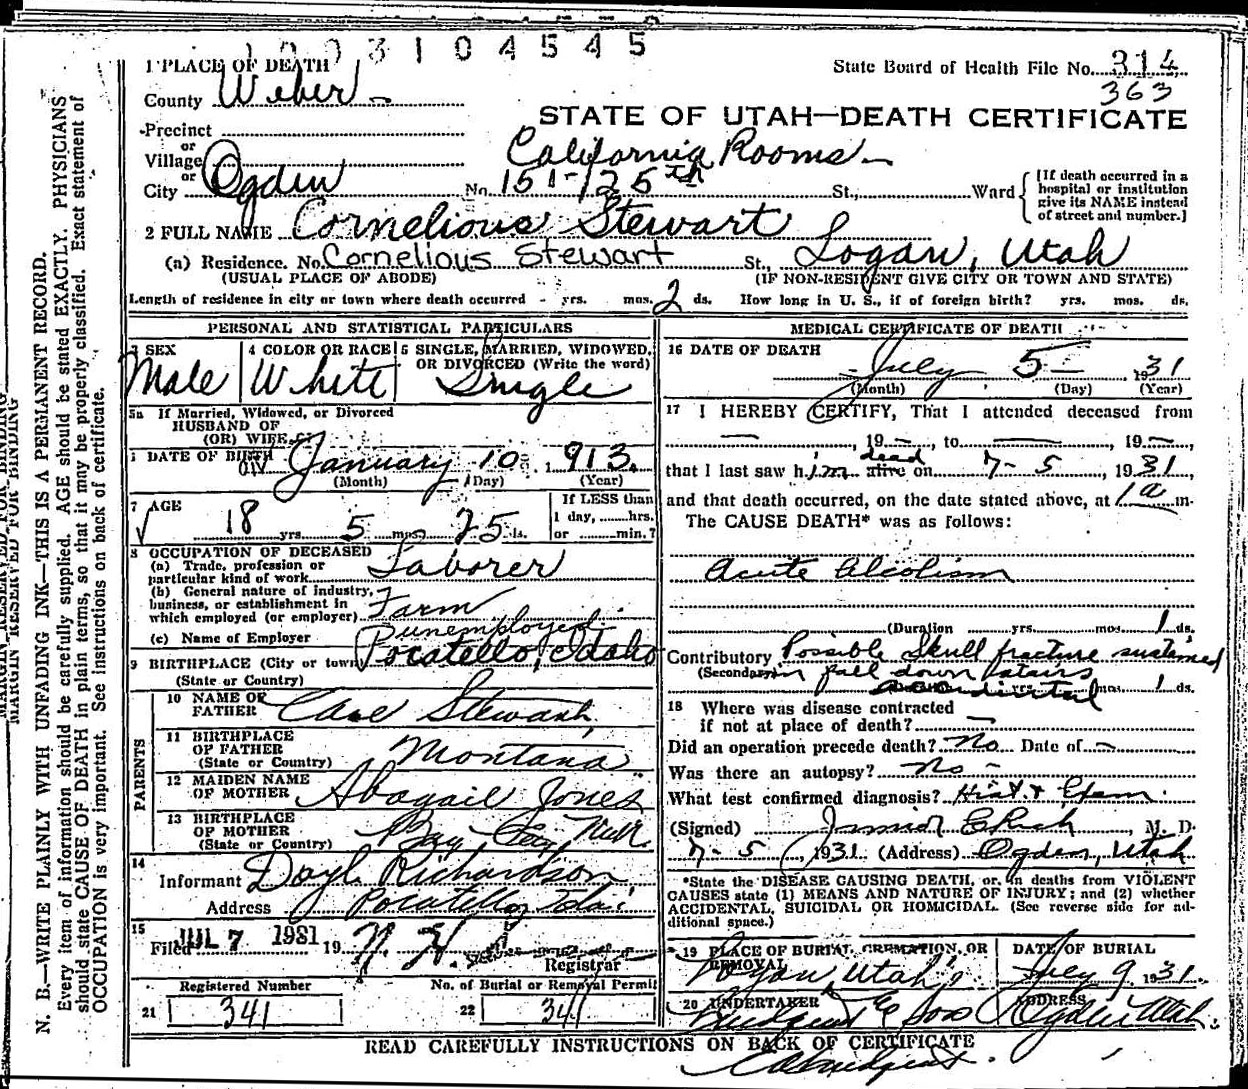 1003104545
1 PLACE OF DEATH
State Board of Health File No. 314
County Weber
363
STATE OF UTAH—DEATH CERTIFICATE
Precinct
or
Village
California Rooms
or
City Ogden No. 151-/25th St., Ward
[If death occurred in a
hospital or institution
give its NAME instead
of street and number.]
2 FULL NAME Cornelious Stewart
(a) Residence. No. Cornelious Stewart St., Logan, Utah
(USUAL PLACE OF ABODE) (IF NON-RESIDENT GIVE CITY OR TOWN AND STATE)
Length of residence in city or town where death occurred - yrs. mos. 2 ds. How long in U. S., if of foreign birth? yrs. mos. ds.
PERSONAL AND STATISTICAL PARTICULARS
3 SEX
Male
4 COLOR OR RACE
White
5 SINGLE, MARRIED, WIDOWED,
OR DIVORCED (Write the word)
Single
5a If Married, Widowed, or Divorced
HUSBAND OF
(OR) WIFE
DATE OF BIRTH January 10 1913
(Month) (Day) (Year)
7 AGE
18 yrs. 5 mos. 25 ds.
If LESS than
1 day, hrs.
or min.?
8 OCCUPATION OF DECEASED
(a) Trade, profession or
particular kind of work Laborer
(b) General nature of industry,
business, or establishment in
which employed (or employer) Farm
(c) Name of Employer unemployed
9 BIRTHPLACE (City or town) Pocatello, Idaho
(State or Country)
PARENTS
10 NAME OF
FATHER Stewart
11 BIRTHPLACE
OF FATHER
(State or Country) Montana
12 MAIDEN NAME
OF MOTHER Abagail Jones
13 BIRTHPLACE
OF MOTHER
(State or Country)
14
Informant Doyl Richardson
Address Pocatello, Ida.
15
Filed JUL 7 1931 19
Registrar
Registered Number
21 341
No. of Burial or Removal Permit
22 341
MEDICAL CERTIFICATE OF DEATH
16 DATE OF DEATH
July 5 - 1931
(Month) (Day) (Year)
17 I HEREBY CERTIFY, That I attended deceased from
— , 19 — , to — , 19 — ,
dead
that I last saw him alive on 7-5, 1931,
and that death occurred, on the date stated above, at 1 a m.
The CAUSE DEATH* was as follows:
Acute alcolism
(Duration yrs. mos. 1 ds.
Contributory Possible Skull fracture sustained
(Secondary) in fall down stairs
yrs. mos. 1 ds.
18 Where was disease contracted
if not at place of death? —
Did an operation precede death? No Date of —
Was there an autopsy? no -
What test confirmed diagnosis? Hist. & Exam.
(Signed) Junior E Rich, M. D.
7-5, 1931 (Address) Ogden, Utah
*State the DISEASE CAUSING DEATH, or, in deaths from VIOLENT
CAUSES state (1) MEANS AND NATURE OF INJURY; and (2) whether
ACCIDENTAL, SUICIDAL OR HOMICIDAL. (See reverse side for ad-
ditional space.)
19 PLACE OF BURIAL, CREMATION, OR
REMOVAL
Logan, Utah
DATE OF BURIAL
July 9 1931.
20 UNDERTAKER
& Sons
ADDRESS
Ogden Utah.
READ CAREFULLY INSTRUCTIONS ON BACK OF CERTIFICATE
MARGIN RESERVED FOR BINDING
MARGIN RESERVED FOR BINDING
N. B.—WRITE PLAINLY WITH UNFADING INK—THIS IS A PERMANENT RECORD.
Every item of information should be carefully supplied. AGE should be stated EXACTLY. PHYSICIANS
should state CAUSE OF DEATH in plain terms, so that it may be properly classified. Exact statement of
OCCUPATION is very important. See instructions on back of certificate.